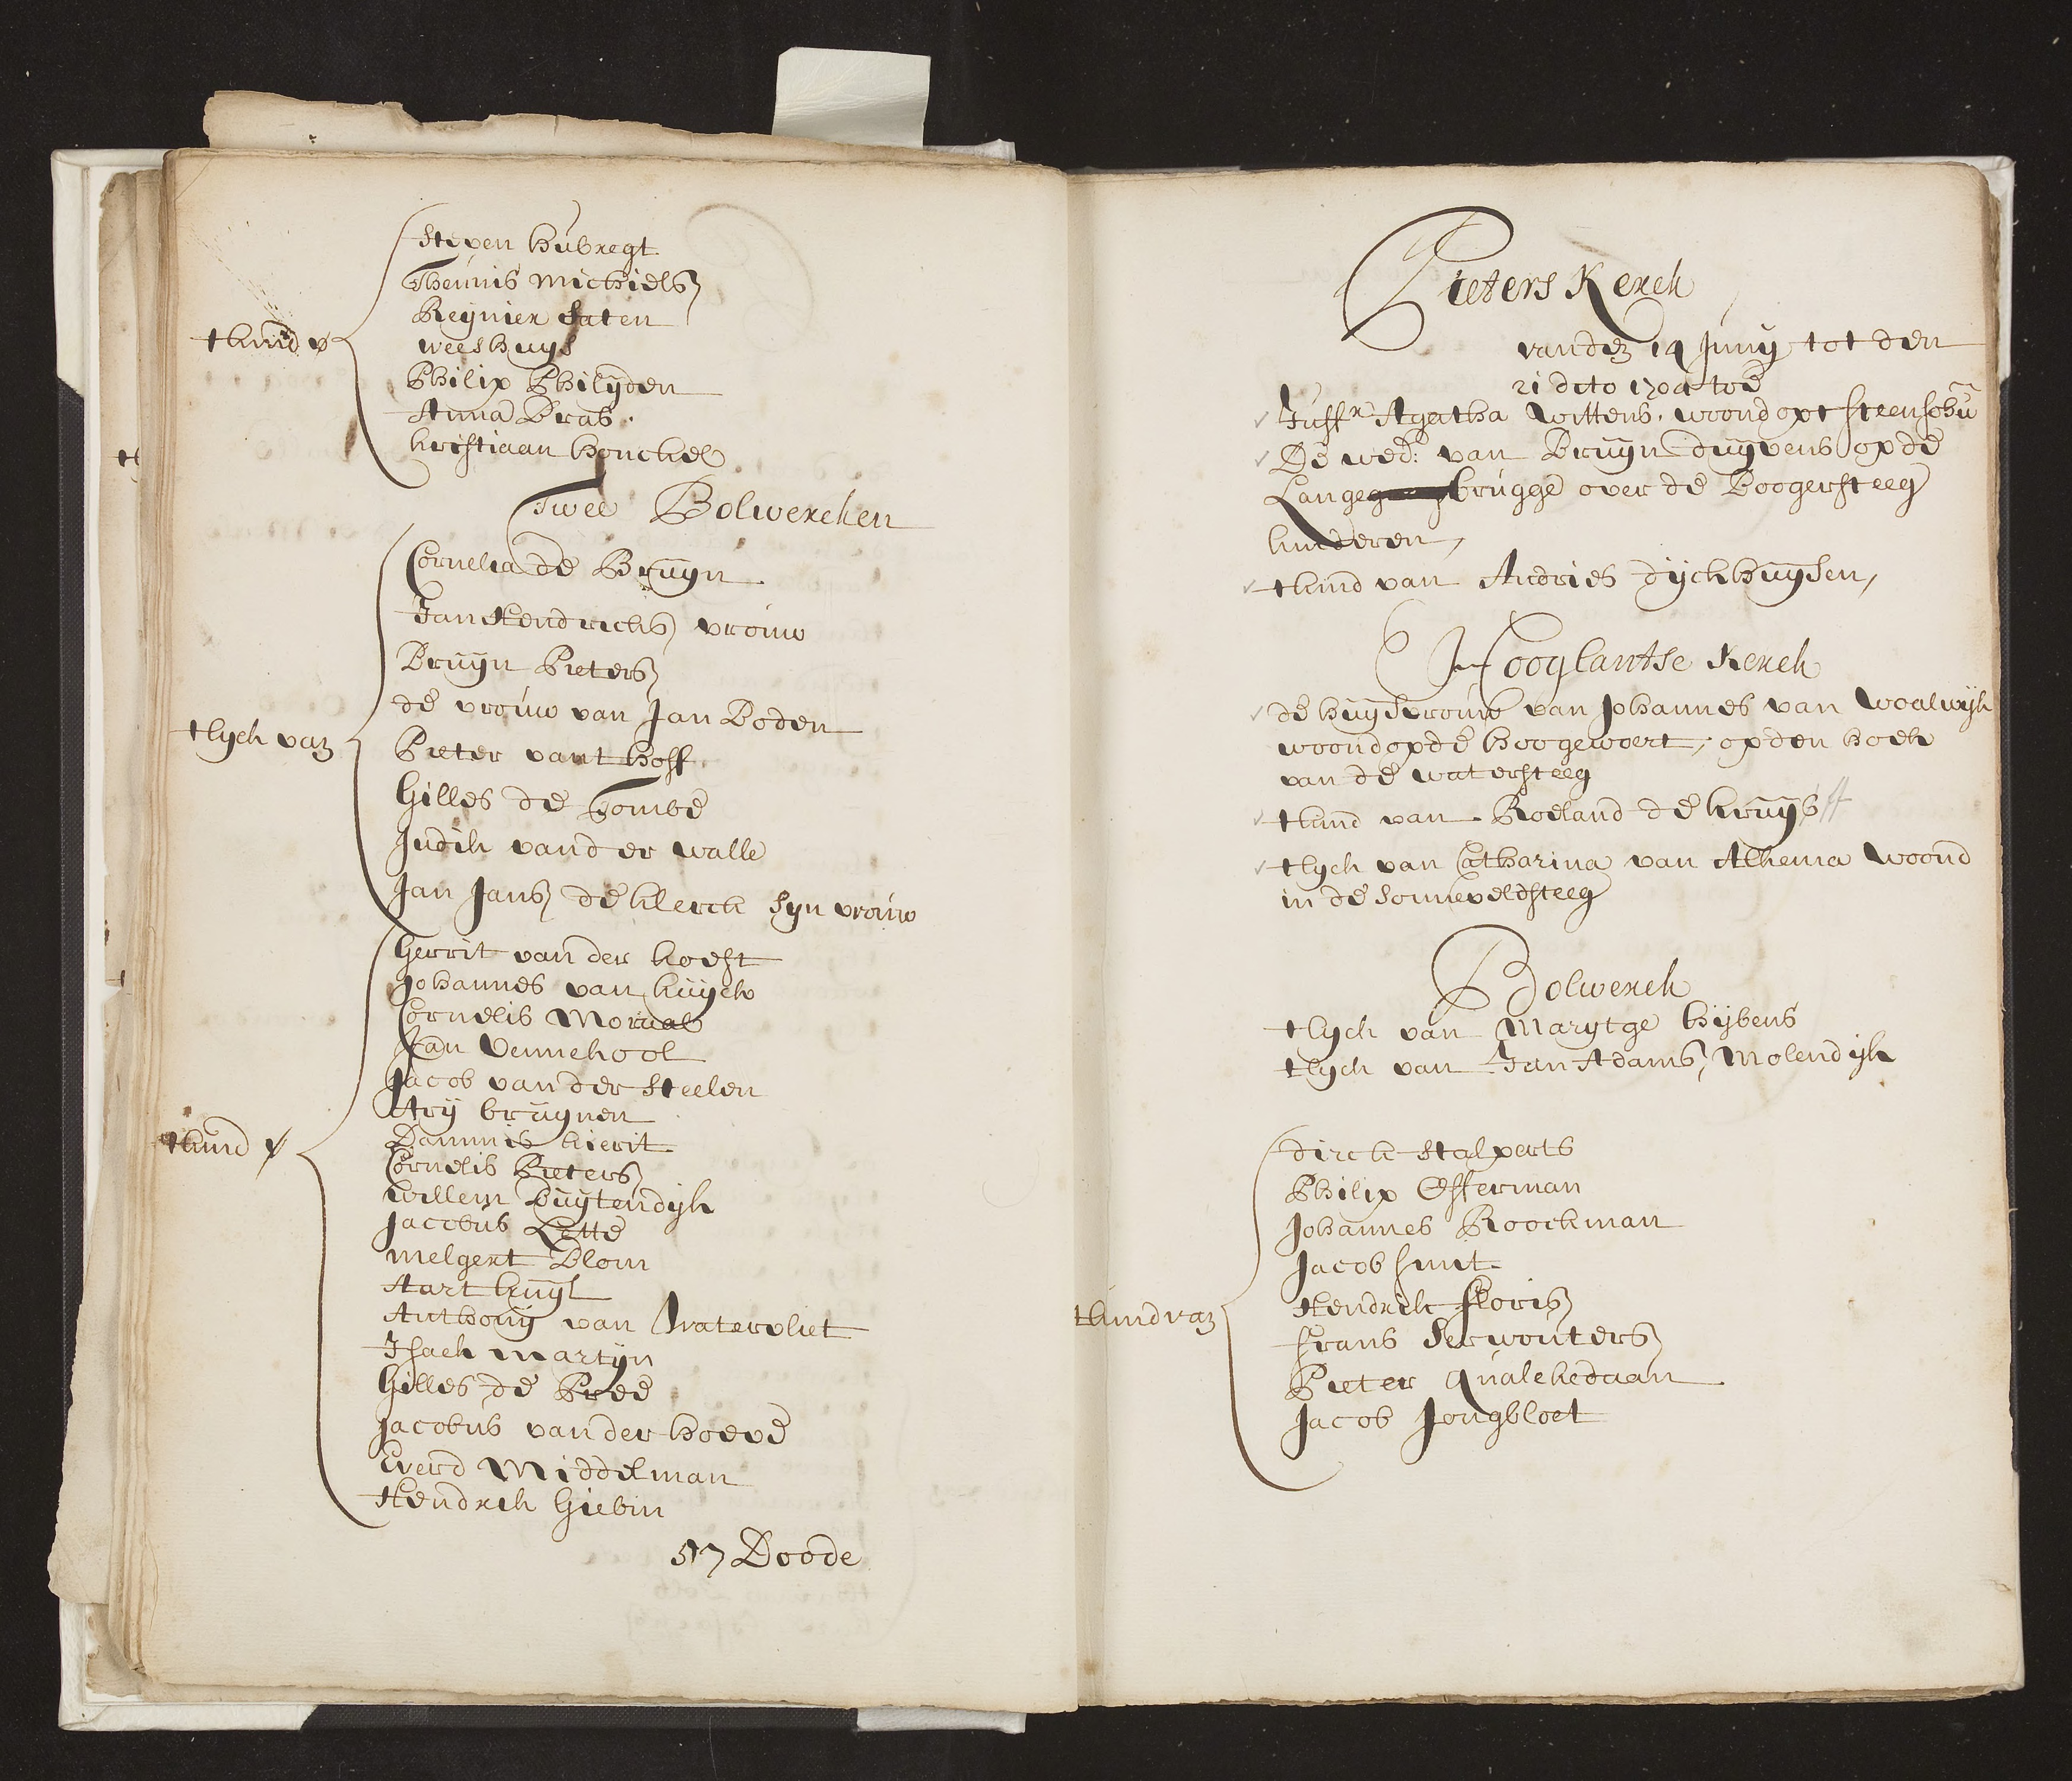 Steven Hubregt
Theunis Michielsz
Reynier Saten
weeshuys
tkind v
Philip Philyden
Anna Brab
Kristiaan Honckel
Twee Bolwercken
Cornelia de Bruyn
Jan Hendricksz vrouw
Bruyn Pietersz
de vrouw van Jan Boden
tlyck van
Pieter vant Hoff
Gilles de Tombe
Judik vander Walle
Jan Jansz de Klerck syn vrouw
Gerrit van der Koest
Johannes van Kuyck
Cornelis Morual
Jan Vennekool
Jacob van der Steelen
Ary Bruynen
tkind v
Dammis Kierit
Cornelis Pietersz
Willem Buytendyk
Jacobus Lette
Melgert Blom
Aart Kuyl
Anthony van Watervliet
Isack Martyn
Gilles de Pree
Jacobus van der Hoeve
Everd Middelman
Hendrik Giebin
57 Doode
Pieters Kerck
vanden 14 Juny tot den
21 dito 1704 toe
Juffr Agatha Wittens, woond opt Steenschu
De wed: van Bruyn Duyvens op de
Lange brugge over de Boogersteeg
kinderen,
tkind van Andries Dyckhuysen,
Hooglantse Kerck
de huysvrouw van Johannes van Woalwyk
woond op de Hoogewoert, op den hoek
van de watersteeg
tkind van Roeland de Kruys
tlyck van Catharina van Alkema woond
in de Sonneveldsteeg
Bolwerck
tlyck van Marytge Gybens
tlyck van Jan Adamsz Molendyk
Dirck Stalperts
Philip Offerman
Johannes Roockman
Jacob Smit
tkind van
Hendrik Florisz
Frans Serwoutersz
Pieter Qualckedaan
Jacob Jongbloet